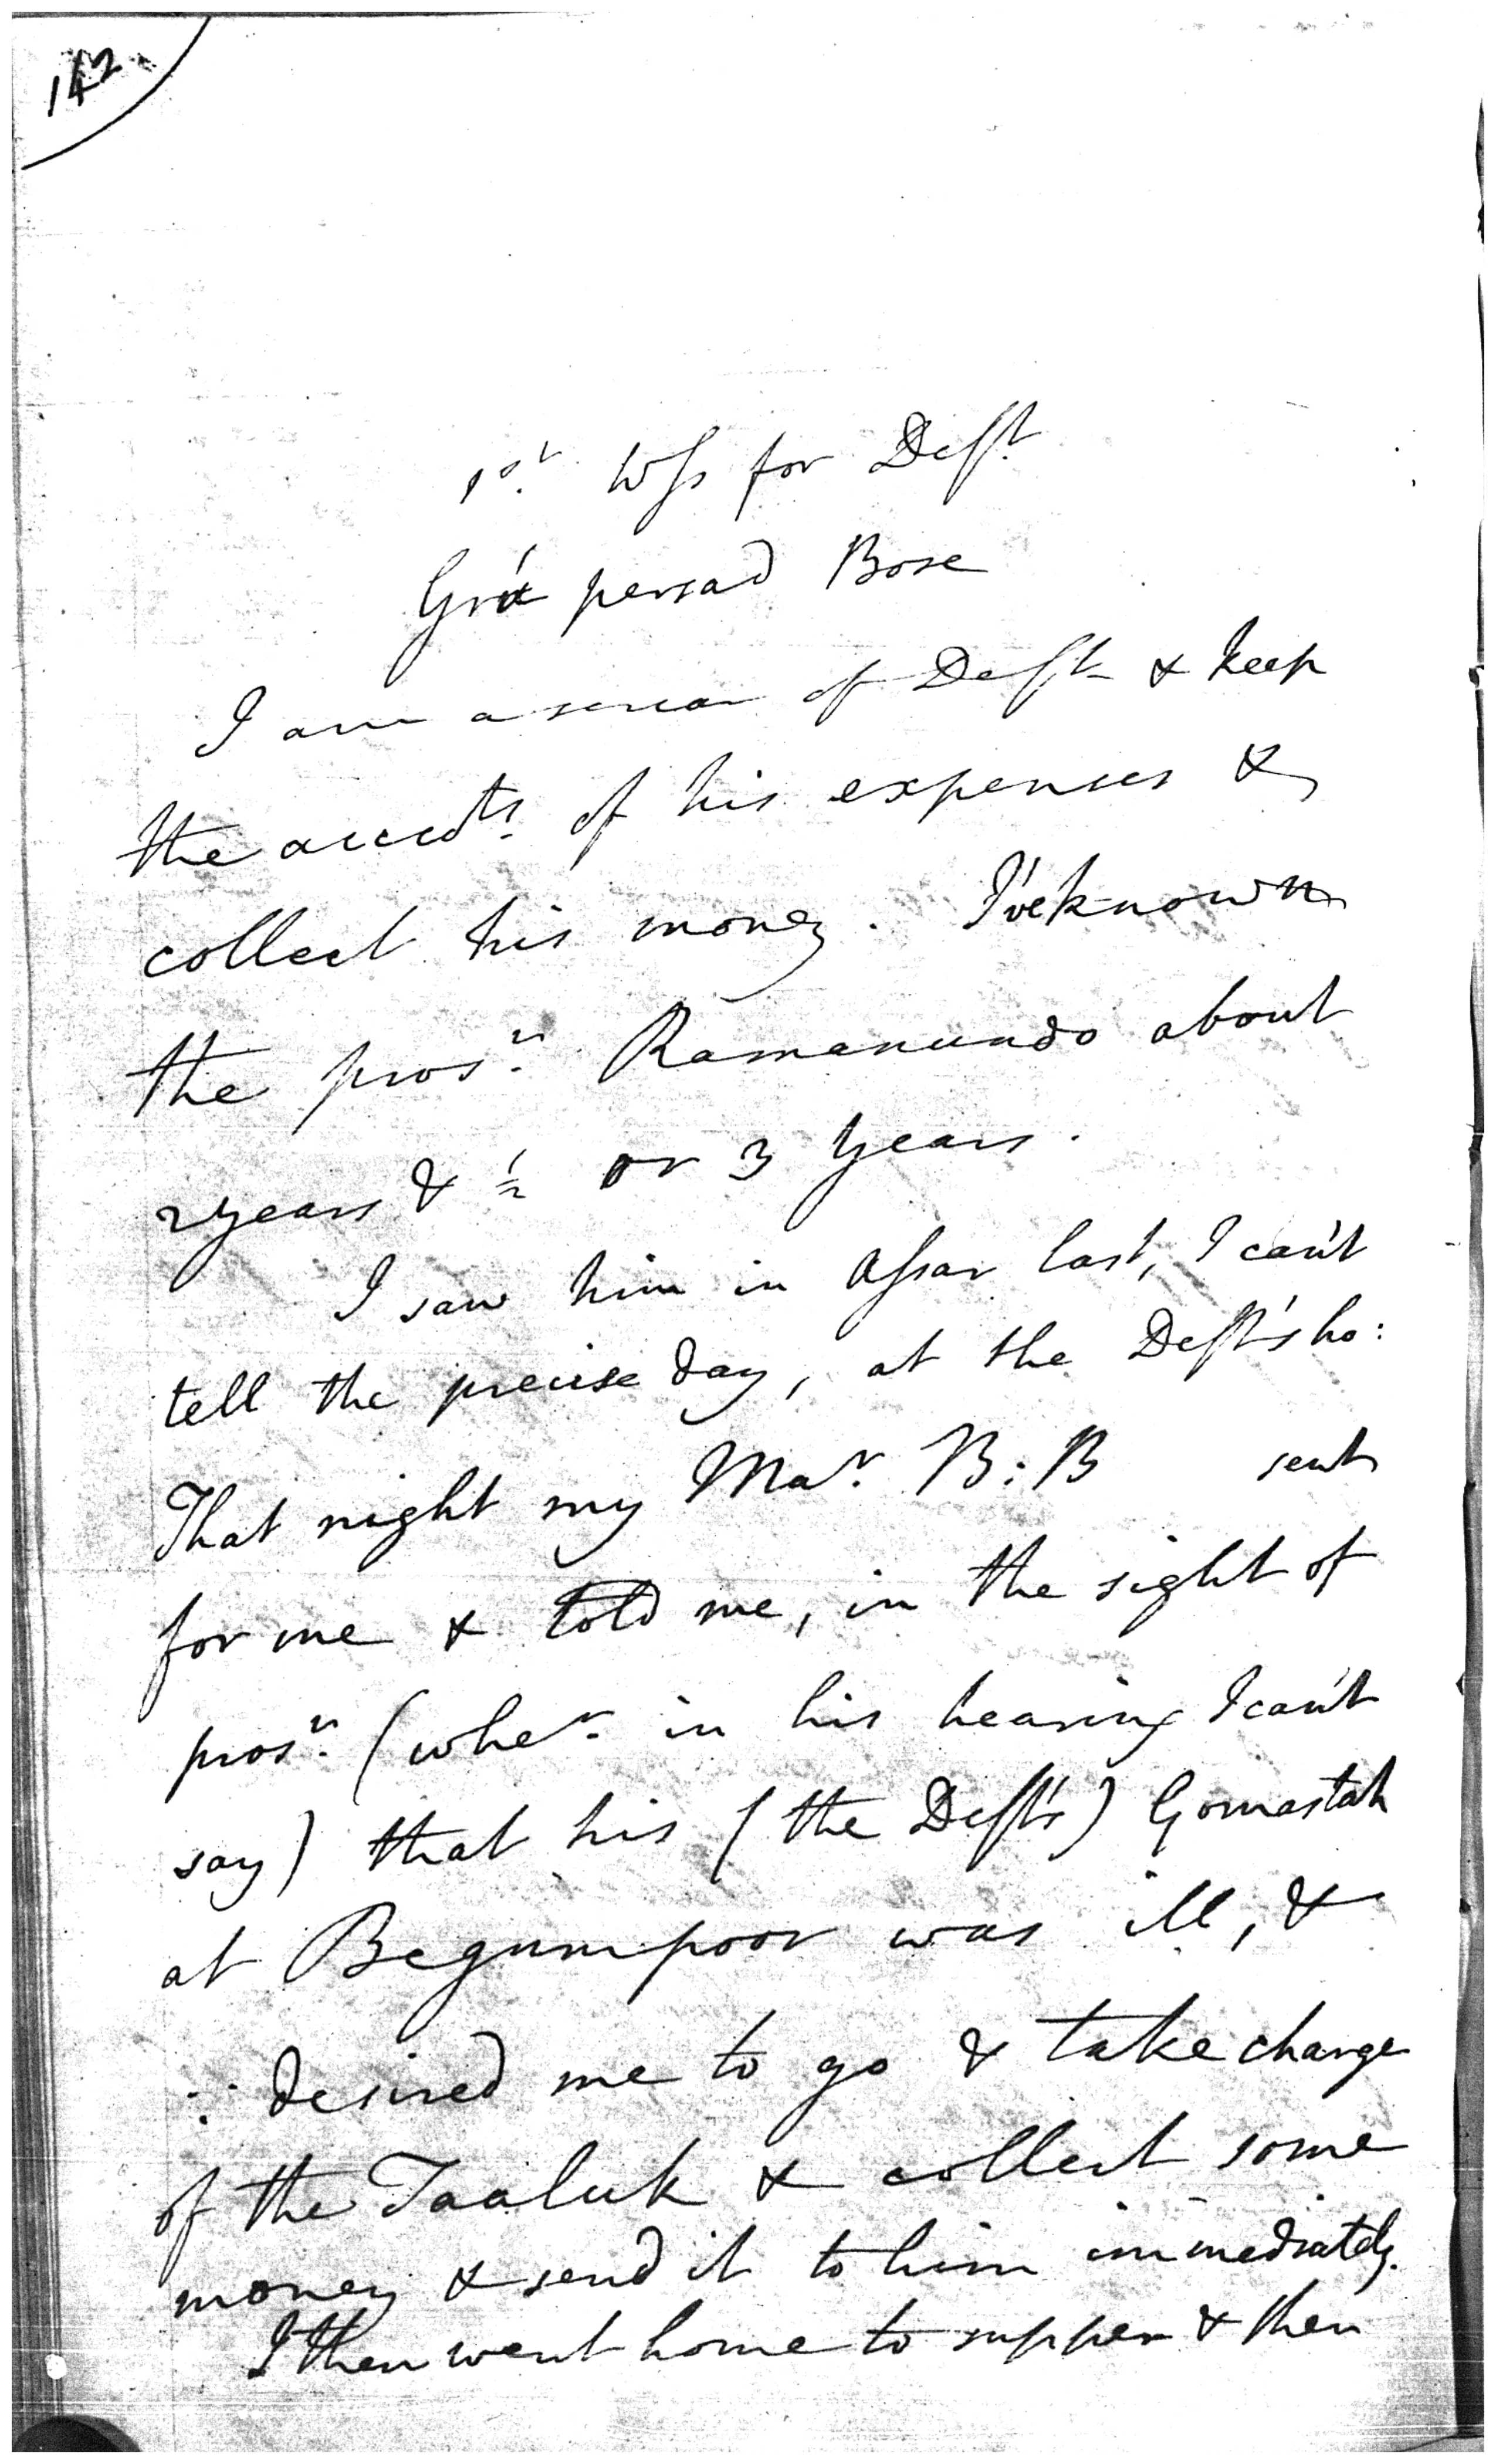 142
1st. Wss for Deft.
persad Bose
I am a sircar of Deft & keep
the accots. of his expenses &
collect his money. I've known
the prosr. Ramanundo about
2 years & 1/2 or 3 years.
I saw him in Assar last, I can't
tell the precise day, at the Deft's ho:
That night my Mar. B: B sent
for me & told me, in the sight of
prosr. (wher. in his hearing I can't
say) that his (the Deft's) Gomastah
at Begumpoor was ill, &
∴ desired me to go & take charge
of the Taaluk & collect some
money & send it to him immediately.
I then went home to supper & then